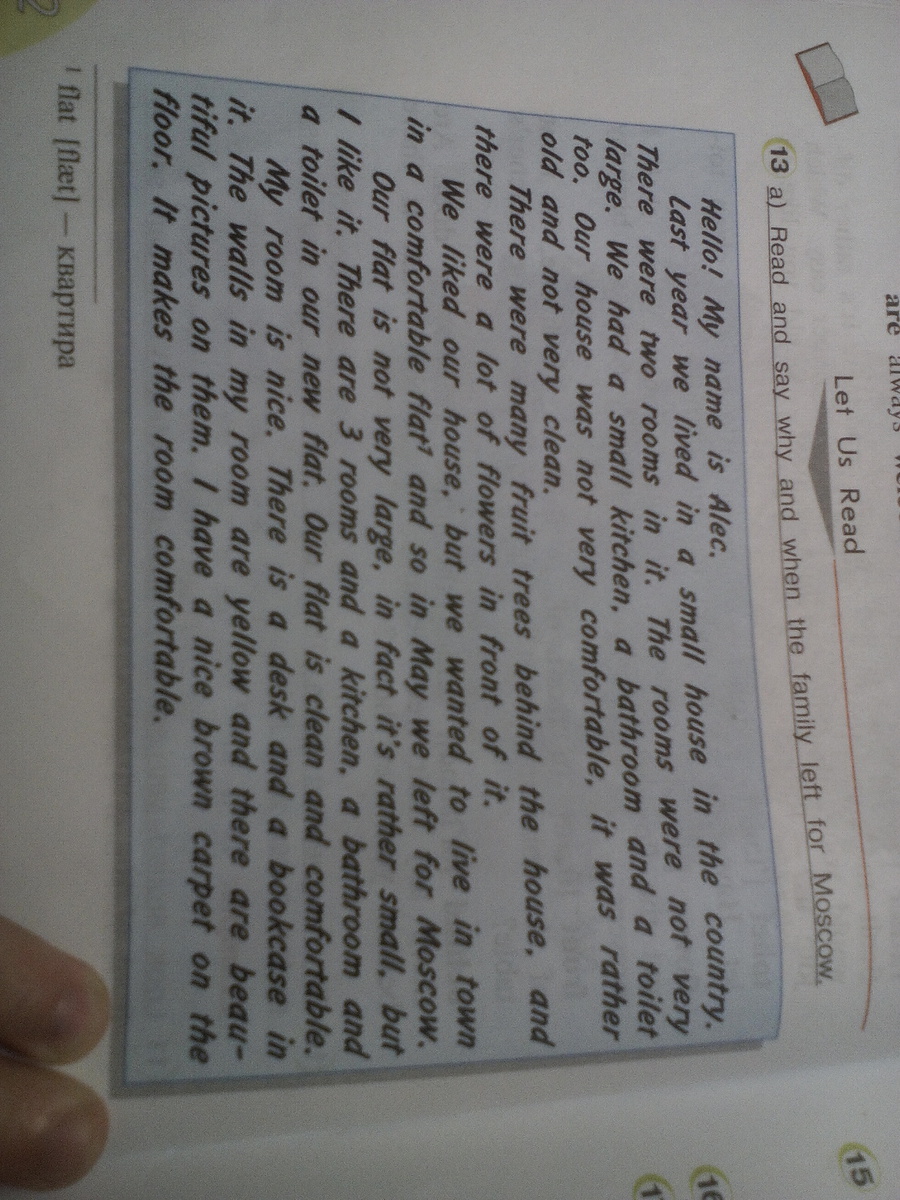 are always
Let Us Read
13 a) Read and say why and when the family left for Moscow.
Hello! My name is Alec.
Last year we lived in a small house in the country.
There were two rooms in it. The rooms were not very
large. We had a small kitchen, a bathroom and a toilet
too. Our house was not very comfortable, it was rather
old and not very clean.
There were many fruit trees behind the house, and
there were a lot of flowers in front of it.
We liked our house, but we wanted to live in town
in a comfortable flat¹ and so in May we left for Moscow.
Our flat is not very large, in fact it's rather small, but
I like it. There are 3 rooms and a kitchen, a bathroom and
a toilet in our new flat. Our flat is clean and comfortable.
My room is nice. There is a desk and a bookcase in
it. The walls in my room are yellow and there are beau-
tiful pictures on them. I have a nice brown carpet on the
floor. It makes the room comfortable.
¹ flat [flæt] — квартира
2
15
16